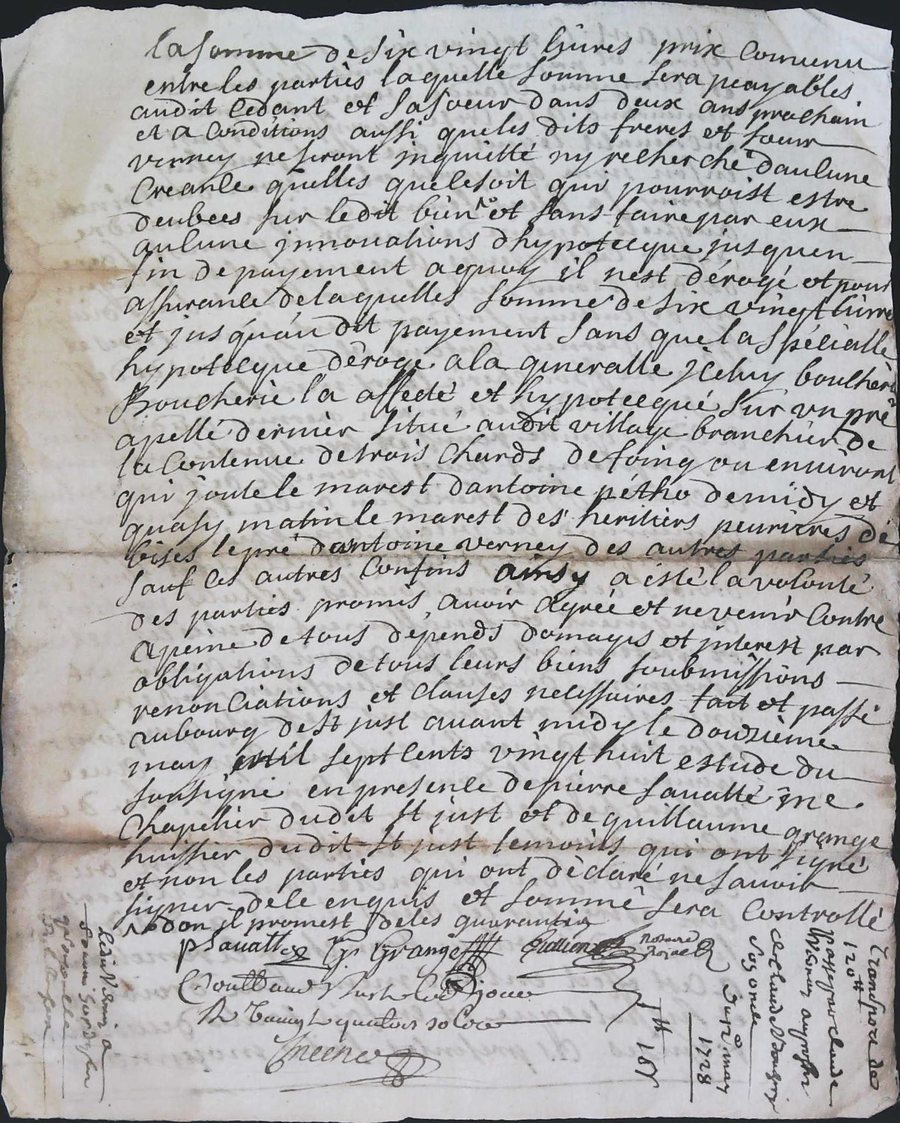 la somme de six vingt livres prix convenu
entre les parties laquelle somme sera peayables
audit Cedant et sa soeur dans deux ans prochain
et a conditions aussi queles dits freres et soeur
verney ne seront inquietté ny recherché daulcune
Creance quelles quelesoit qui pourroist estre
deubees sur ledit bien et sans faire par eux
aulcune innovations dhypotecque jusquen
fin de payement aquoy il nest dérogé et pour
assurance delaquelles somme de six vingt livres
et jusquau dit payement sans que la spécialle
hypotecque déroge ala generalle iceluy
Boucherie la affecté et hypotecqué sur un pré
apellé dernier situé audit village branchier de
la Contenue de trois chards de foing ou environt
qui joute le marest dantoine pétho demidy et
quasy matin le marest des heritiers de
bises le pré dantoine verney des autres parties
sauf ces autres Confins ainsy a esté la volonté
des parties promis avoir agréé et ne venir Contre
apeine de tous dépends domages et interest par
obligations de tous leurs biens soubmissions
renonciations et clauses necessaires fait et passé
aubourg de st just avant midy le douzieme
may mil sept cents vingt huit estude du
sousigné en presence de pierre sauatte me
Chapelier dudit st just et de guillaume grange
huissier dudit st just temoins qui ont signé
et non les parties qui ont déclaré ne savoir
signer de le enquis et sommé sera Controllé
P Sauatte G Grange Notaire Royal
12 may
1728
Transport de
120 tt